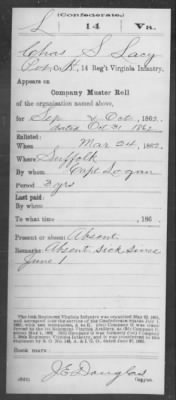 (Confederate.)
L 14 Va.
Chas S. Lacy
Pvt., Co. K, 14 Reg't Virginia Infantry.
Appears on
Company Muster Roll
of the organization named above,
for Sep & Oct, 1862.
dated Oct 31 1862
Enlisted:
When Mar 24, 1862.
Where Suffolk
By whom Capt Logan
Period 3 yrs
Last paid:
By whom
To what time , 186 .
Present or absent: Absent
Remarks: Absent sick since
June 1
Book mark:
J E Douglas
Copyist.